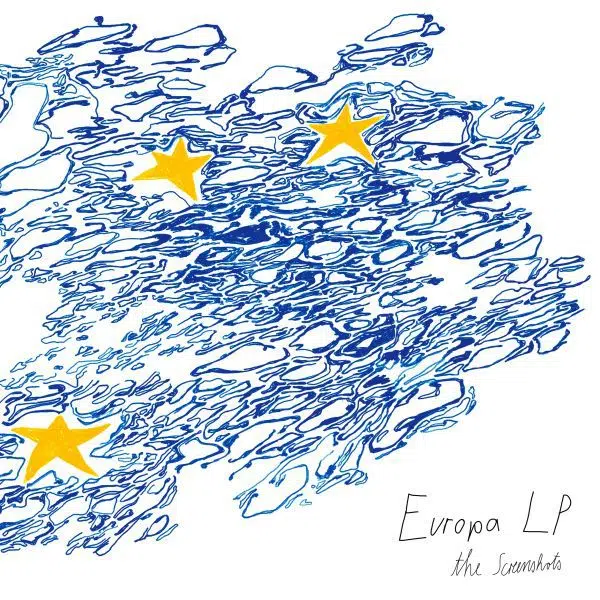 Europa LP
the Screenshots